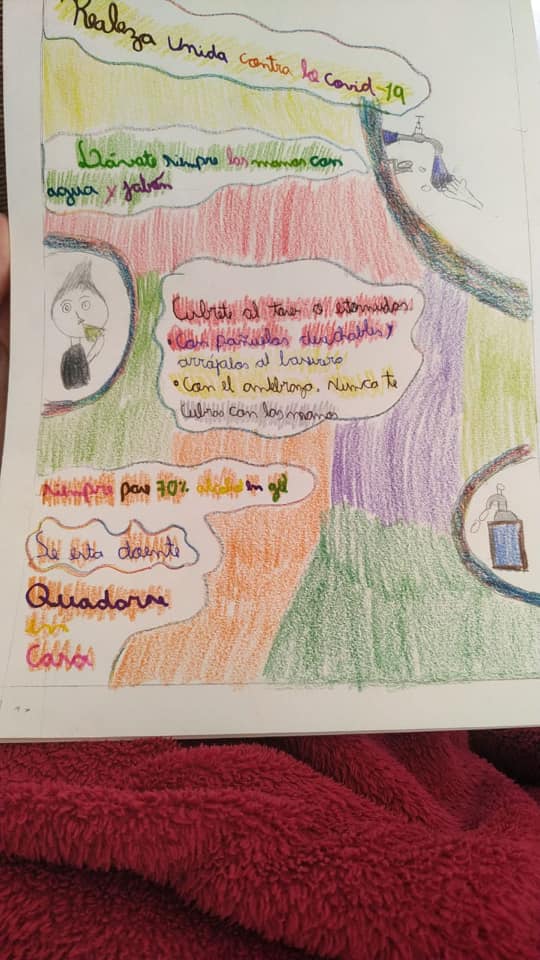 Realeza Unida contra la Covid-19
Lávate siempre las manos con
agua y jabón
Cubrete al toser o estornudas
• Con pañuelos deschables y
arrójalos al basurero
• Con el antebrazo. Nunca te
cubras con las manos
siempre pase 70% alcohol en gel
Se esta doente
Quadarse
en
Casa